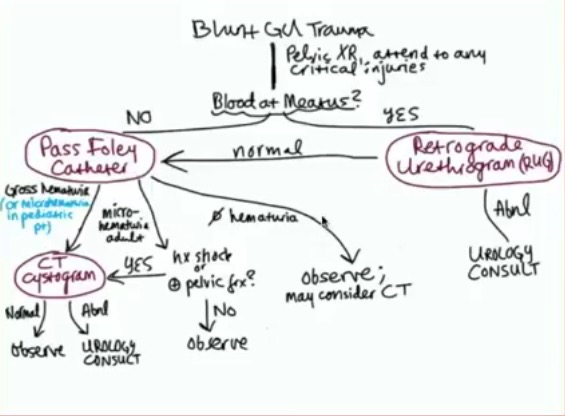 Blunt GU Trauma
Pelvic XR, attend to any
critical injuries
Blood at Meatus?
NO
YES
Pass Foley
Catheter
normal
Retrograde
Urethrogram (RUG)
Gross hematuria
(or microhematuria
in pediatric
pt)
micro-
hematuria
adult
∅ hematuria
Abnl
UROLOGY
CONSULT
CT
Cystogram
YES
hx shock
or
⊕ pelvic frx?
Observe;
may consider CT
Normal
Abnl
NO
Observe
UROLOGY
CONSULT
Observe